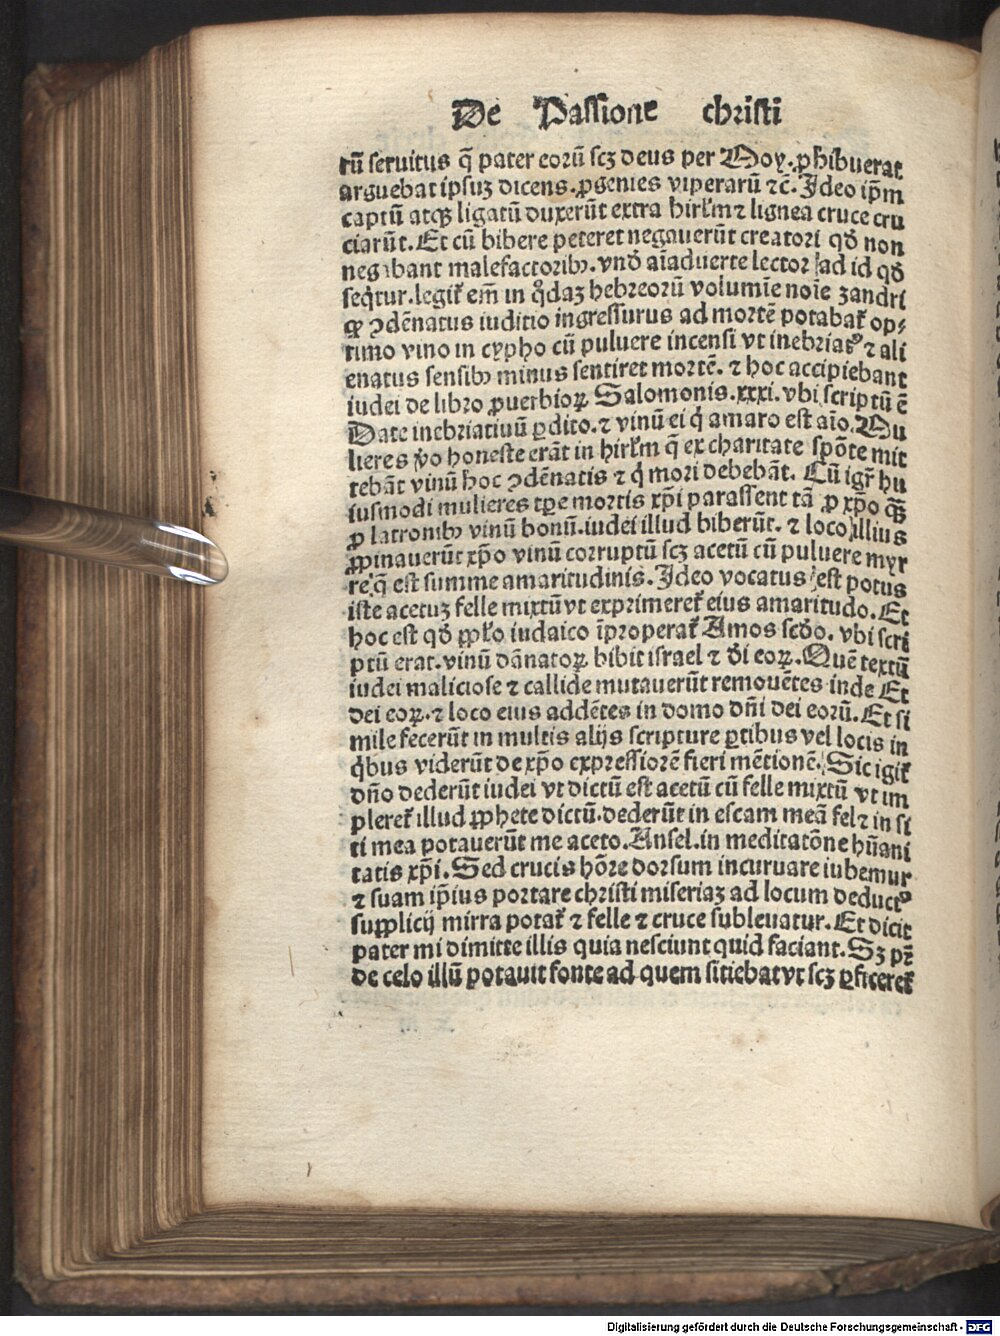 De Passione christi
tū seruitus q̄ pater eorū scꝫ deus per Moy. ꝓhibuerat
arguebat ipsuꝫ dicens. ꝓgenies viperarū ⁊c̄. Ideo ip̄m
captū atqꝫ ligatū duxerūt extra hirl'm ⁊ lignea cruce cru
ciarūt. Et cū bibere peteret negauerūt creatori qd̄ non
negabant malefactoribꝰ. vnd̄ aīaduerte lector ad id qd̄
seq̄tur. legit̄ em̄ in q̊daꝫ hebreorū volumīe noīe zandri
ꝙ ꝯdēnatus iuditio ingressurus ad mortē potabat̄ op⸗
timo vino in cypho cū puluere incensi vt inebriatꝰ ⁊ ali
enatus sensibꝰ minus sentiret mortē. ⁊ hoc accipiebant
iudei de libro ꝓuerbioꝝ Salomonis. xxxi. vbi scriptū ē
Date inebriatiuū ꝑdito. ⁊ vinū ei q̇ amaro est aīo. Mu
lieres v̊o honeste erāt in hirl'm q̄ ex charitate spōte mit
tebāt vinū hoc ꝯdēnatis ⁊ q̇ mori debebāt. Cū igr̄ hu
iusmodi mulieres tꝑe mortis xp̄i parassent tā ꝓ xp̄o qꝫ̄
ꝓ latronibꝰ vinū bonū. iudei illud biberūt. ⁊ loco illius
ꝓpinauerūt xp̄o vinū corruptū scꝫ acetū cū puluere myr
re q̄ est summe amaritudinis. Ideo vocatus est potus
iste acetuꝫ felle mixtū vt exprimeret̄ eius amaritudo. Et
hoc est qd̄ pp̄l'o iudaico īproperat̄ Amos scd̄o. vbi scri
ptū erat. vinū dānatoꝝ bibit israel ⁊ d̄i eoꝝ. Quē textū
iudei maliciose ⁊ callide mutauerūt remouētes inde Et
dei eoꝝ. ⁊ loco eius addētes in domo dn̄i dei eorū. Et si
mile fecerūt in multis alijs scripture ꝑtibus vel locis in
q̇bus viderūt de xp̄o expressiorē fieri mētionē. Sic igit̄
dn̄o dederūt iudei vt dictū est acetū cū felle mixtū vt im
pleret̄ illud ꝓphete dictū. dederūt in escam meā fel ⁊ in si
ti mea potauerūt me aceto. Ansel. in meditatōne hūani
tatis xp̄i. Sed crucis hōre dorsum incuruare iubemur
⁊ suam ip̄ius portare christi miseriaꝫ ad locum deductꝰ
supplicij mirra potat̄ ⁊ felle ⁊ cruce subleuatur. Et dicit
pater mi dimitte illis quia nesciunt quid faciant. Sꝫ pr̄
de celo illū potauit fonte ad quem sitiebat vt scꝫ ꝑficeret̄
Digitalisierung gefördert durch die Deutsche Forschungsgemeinschaft - DFG